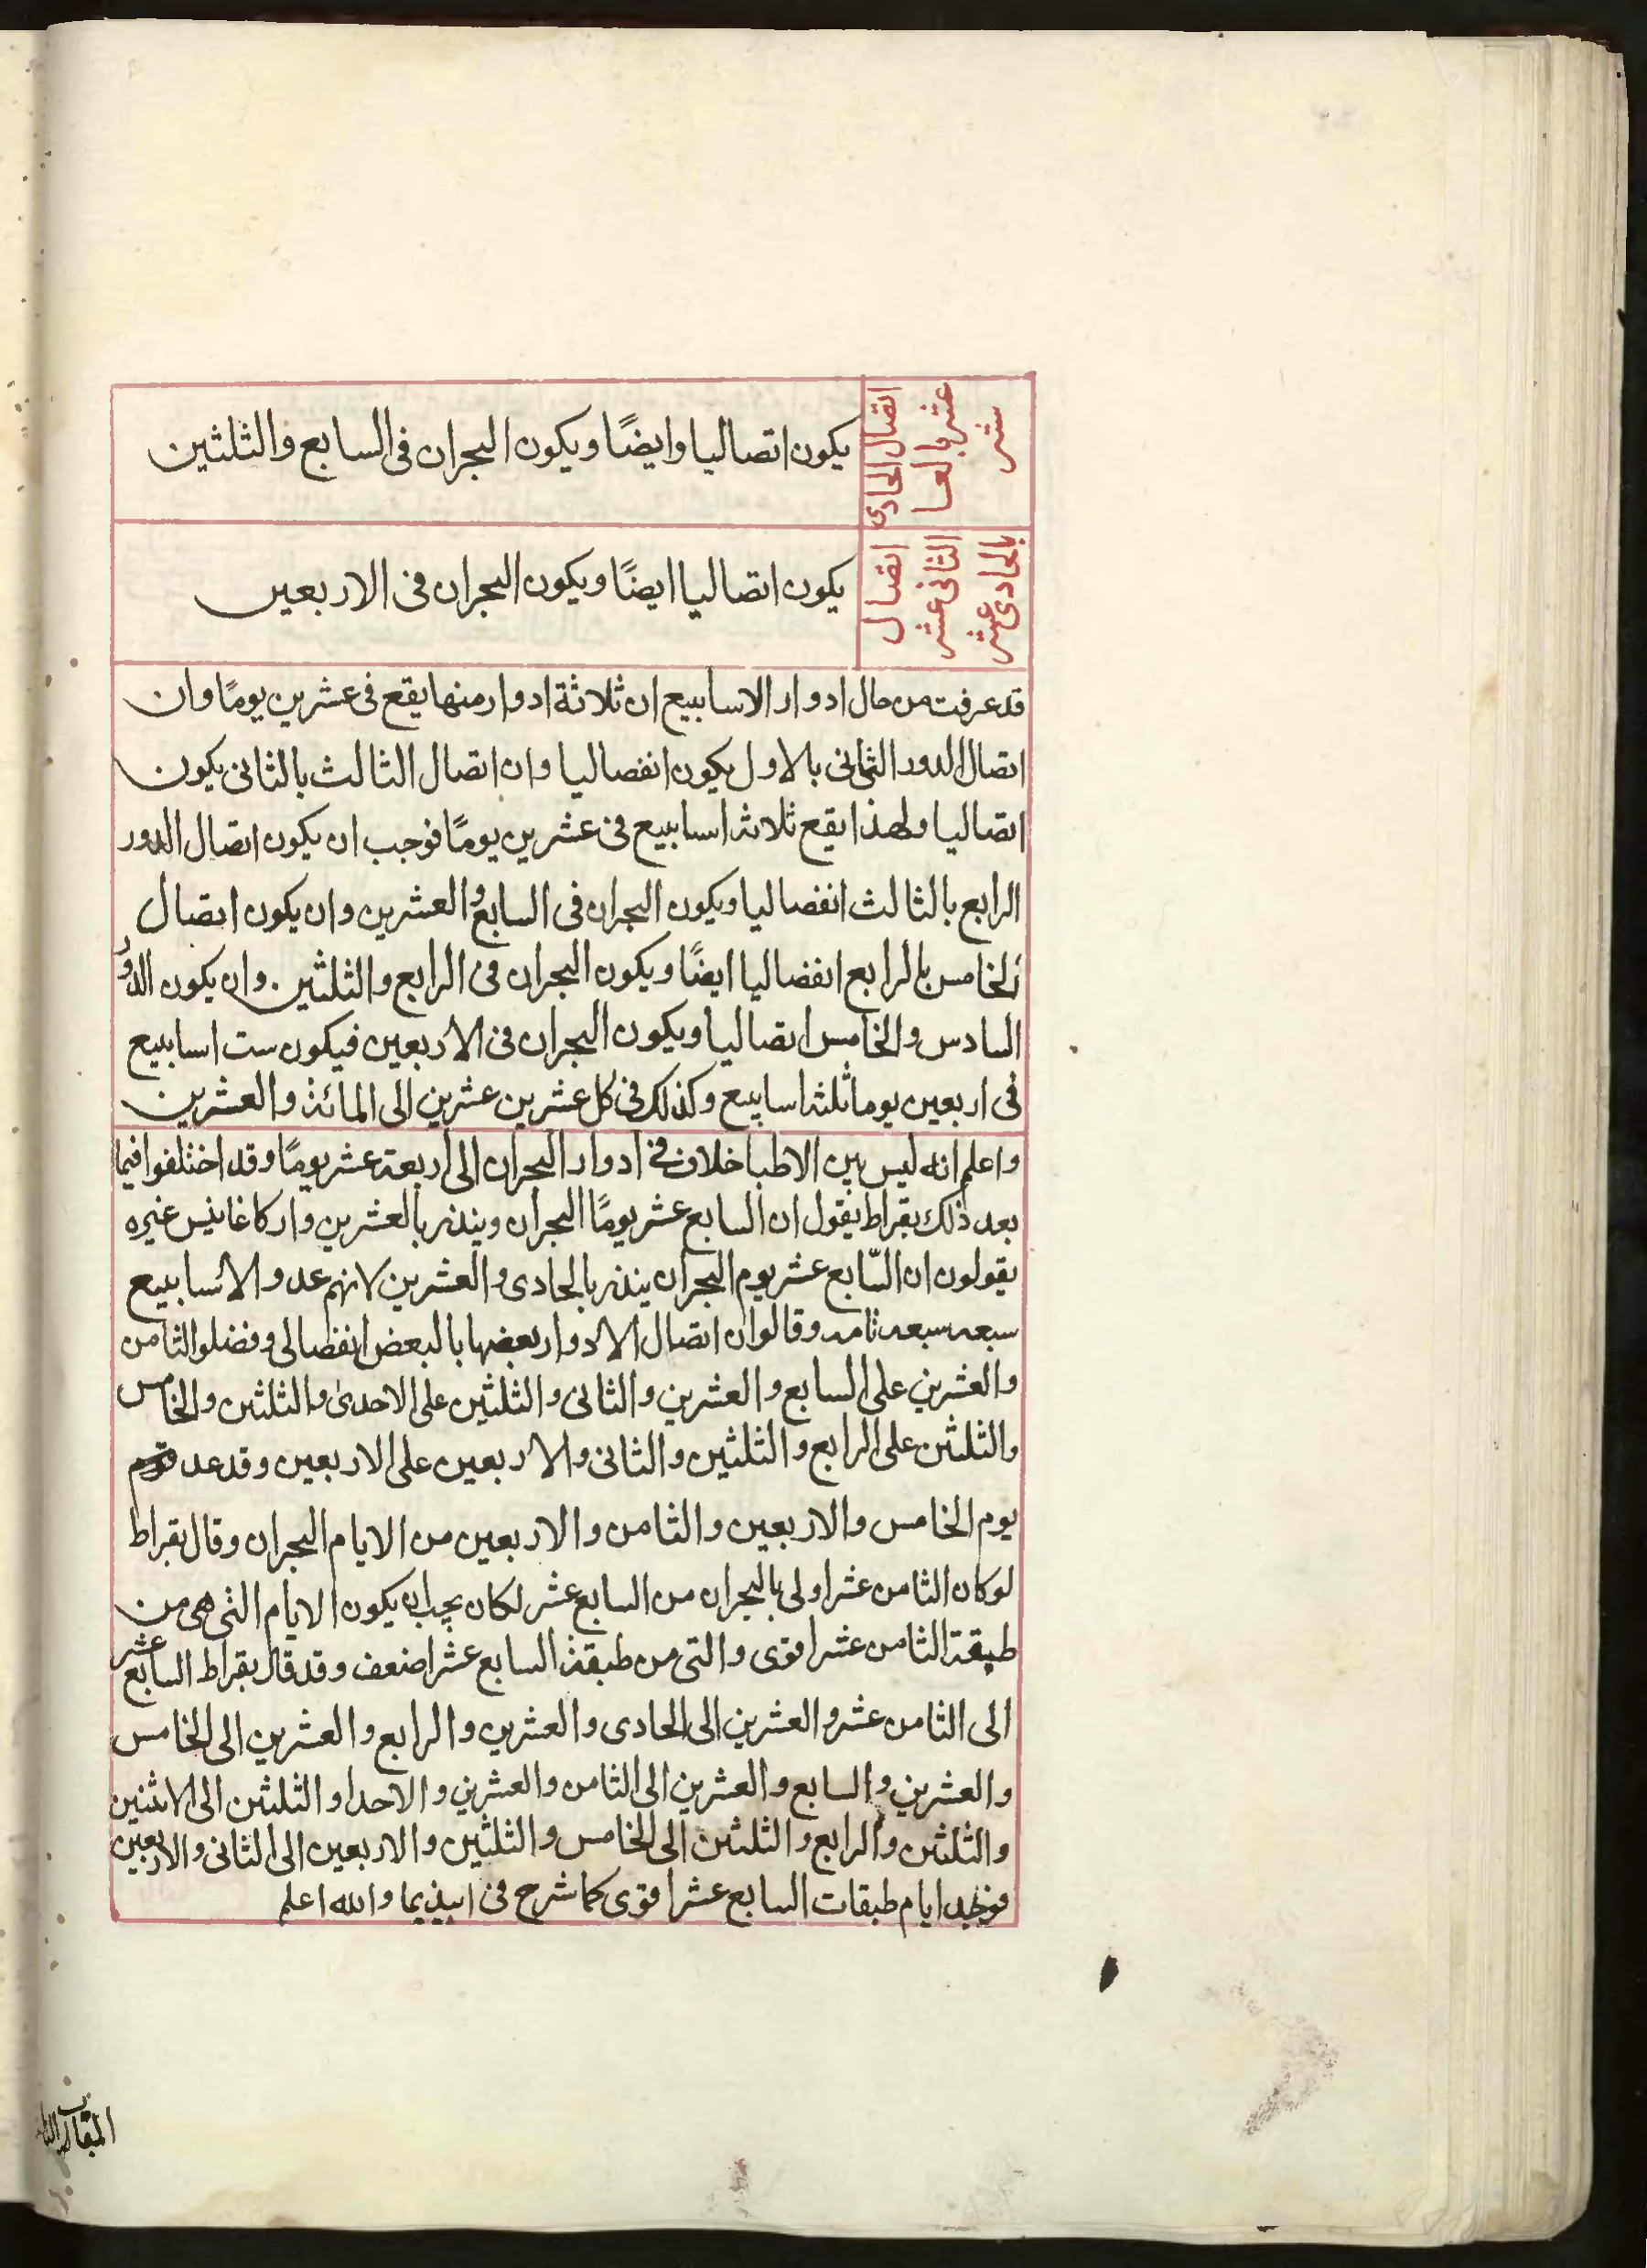 اتصال الحادى
عشر بالعا
شر
يكون اتصاليا وايضًا ويكون البحران فى السابع والثلثين
اتصال
الثانى عشر
بالحادى عشر
يكون اتصاليا ايضًا ويكون البحران فى الاربعين
قد عرفت من حال ادوار الاسابيع ان ثلاثة ادوار منها يقع فى عشرين يومًا وان
اتصال الدور الثانى بالاول يكون انفصاليا وان اتصال الثالث بالثانى يكون
اتصاليا ولهذا يقع ثلاثة اسابيع فى عشرين يومًا فوجب ان يكون اتصال الدور
الرابع بالثالث انفصاليا ويكون البحران فى السابع والعشرين وان يكون اتصال
الخامس بالرابع انفصاليا ايضًا ويكون البحران فى الرابع والثلثين . وان يكون الدور
السادس والخامس اتصاليا ويكون البحران فى الاربعين فيكون ست اسابيع
فى اربعين يوما ثلثة اسابيع وكذلك فى كل عشرين عشرين الى المائة والعشرين
واعلم انه ليس بين الاطبا خلاف فى ادوار البحران الى اربعة عشر يومًا وقد اختلفوا فيما
بعد ذلك بقراط يقول ان السابع عشر يومًا البحران وينذر بالعشرين واركاغانيس غيره
يقولون ان السّابع عشر يوم البحران ينذر بالحادى والعشرين لانهم عدو الاسابيع
سبعة سبعة تامة وقالو ان اتصال الادوار بعضها بالبعض انفصالى وفضلوا الثامن
والعشرين على السابع والعشرين والثانى والثلثين على الاحدى والثلثين والخامس
والثلثين على الرابع والثلثين والثانى والاربعين على الاربعين وقد عد قوم
يوم الخامس والاربعين والثامن والاربعين من الايام البحران وقال بقراط
لو كان الثامن عشر اولى بالبحران من السابع عشر لكان يجب ان يكون الايام التى هى من
طبقة الثامن عشر اقوى والتى من طبقة السابع عشر اضعف وقد قال بقراط السابع عشر
الى الثامن عشر والعشرين الى الحادى والعشرين والرابع والعشرين الى الخامس
والعشرين والسابع والعشرين الى الثامن والعشرين والاحد والثلثين الى الاثنين
والثلثين والرابع والثلثين الى الخامس والثلثين والاربعين الى الثانى والاربعين
فوجد ايام طبقات السابع عشر اقوى كما شرح فى ابيذيما والله اعلم